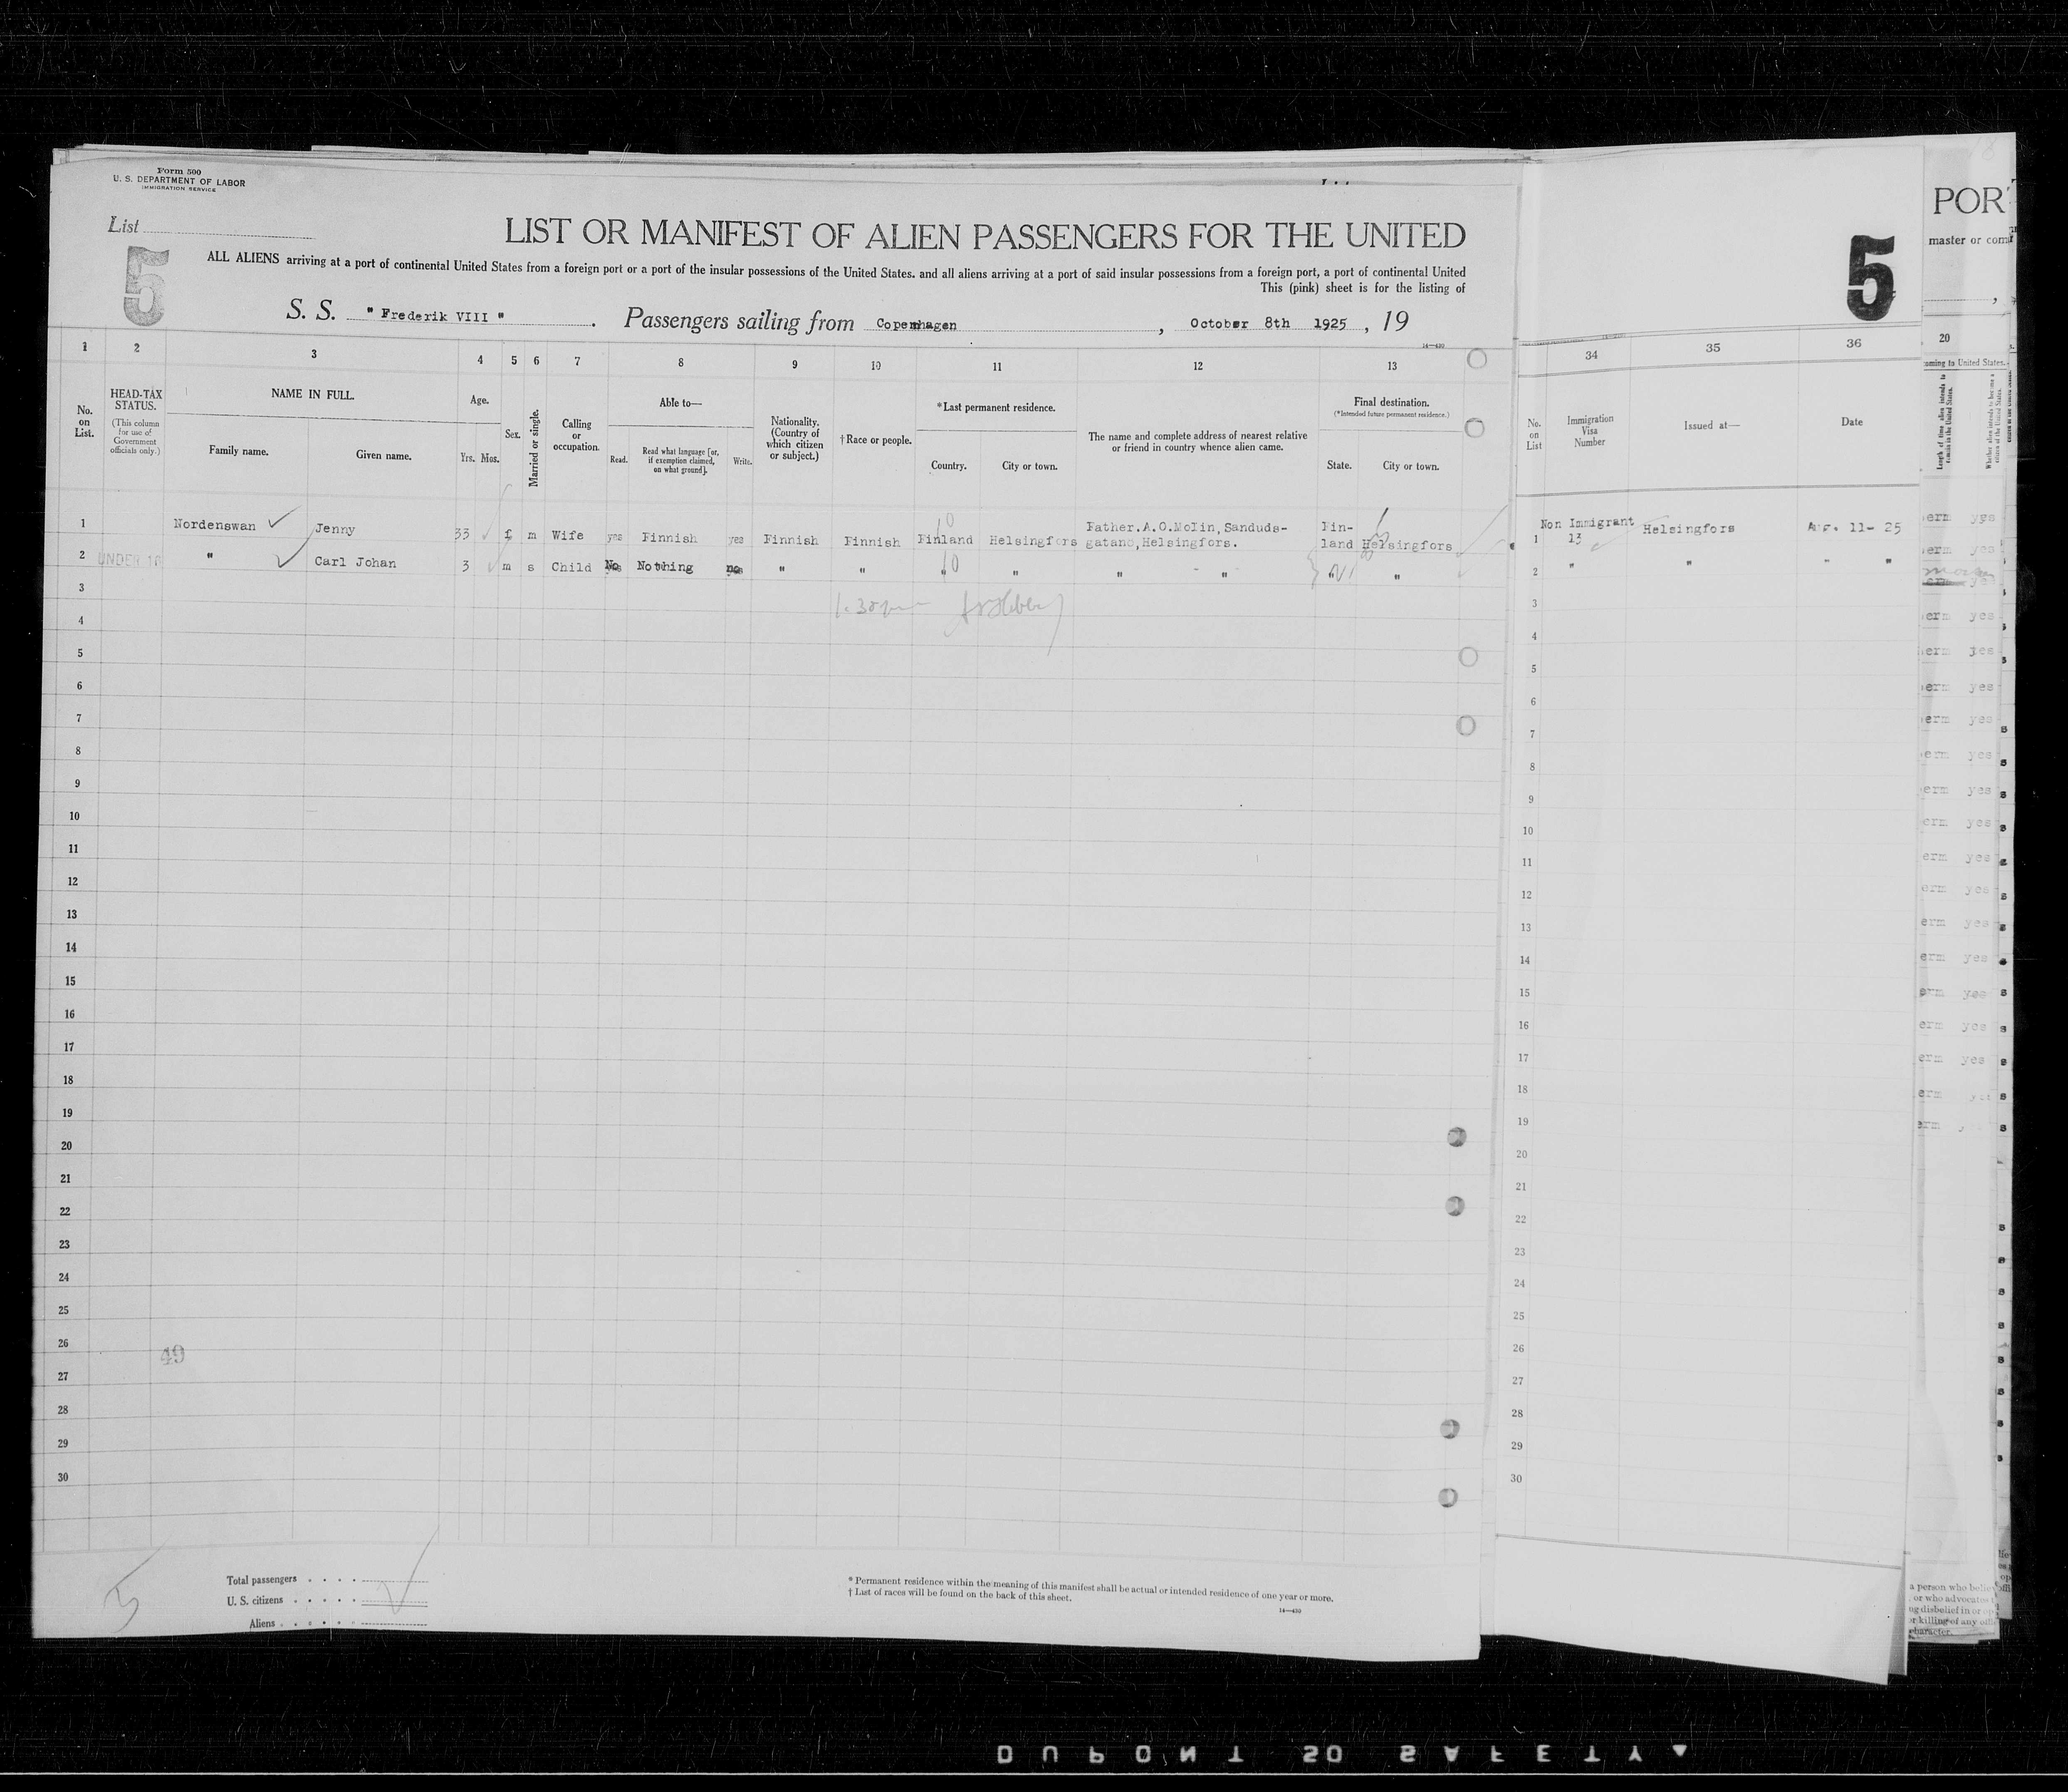 Form 500
U. S. DEPARTMENT OF LABOR
IMMIGRATION SERVICE
List
5
LIST OR MANIFEST OF ALIEN PASSENGERS FOR THE UNITED
ALL ALIENS arriving at a port of continental United States from a foreign port or a port of the insular possessions of the United States. and all aliens arriving at a port of said insular possessions from a foreign port, a port of continental United
This (pink) sheet is for the listing of
S. S. " Frederik VIII " . Passengers sailing from Copenhagen , October 8th 1925 , 19
14—430
1 2 3 4 5 6 7 8 9 10 11 12 13
No. on List.
HEAD-TAX STATUS.
(This column for use of Government officials only.)
NAME IN FULL.
Family name. Given name.
Age.
Yrs. Mos.
Sex.
Married or single.
Calling or occupation.
Able to—
Read.
Read what language [or, if exemption claimed, on what ground].
Write.
Nationality. (Country of which citizen or subject.)
† Race or people.
*Last permanent residence.
Country. City or town.
The name and complete address of nearest relative or friend in country whence alien came.
Final destination.
(*Intended future permanent residence.)
State. City or town.
1 Nordenswan Jenny 33 f m Wife yes Finnish yes Finnish Finnish Finland Helsingfors Father.A.O.Molin,Sanduds-gatano,Helsingfors. Fin-land Helsingfors
10
2 UNDER 16 " Carl Johan 3 m s Child No Nothing no " " " " " " " "
10
3
4
5
6
7
8
9
10
11
12
13
14
15
16
17
18
19
20
21
22
23
24
25
26
49
27
28
29
30
Total passengers
U. S. citizens
Aliens
* Permanent residence within the meaning of this manifest shall be actual or intended residence of one year or more.
† List of races will be found on the back of this sheet.
14—430
5
34 35 36
No. on List
Immigration Visa Number
Issued at—
Date
1 Non Immigrant 13 Helsingfors 11- 25
2 " " " "
3
4
5
6
7
8
9
10
11
12
13
14
15
16
17
18
19
20
21
22
23
24
25
26
27
28
29
30
POR
master or com
20
oming to United States.
Length of time alien intends to remain in the United States.
Whether alien intends to become a citizen of the United States.
erm yes
erm yes
erm yes
erm yes
erm yes
erm yes
erm yes
erm yes
erm yes
erm yes
erm yes
erm yes
erm yes
erm yes
erm yes
erm yes
erm
erm
a person who belie
or who advocates
ng disbelief in or op
or killing of any offi
character.
DUPONT SAFETY